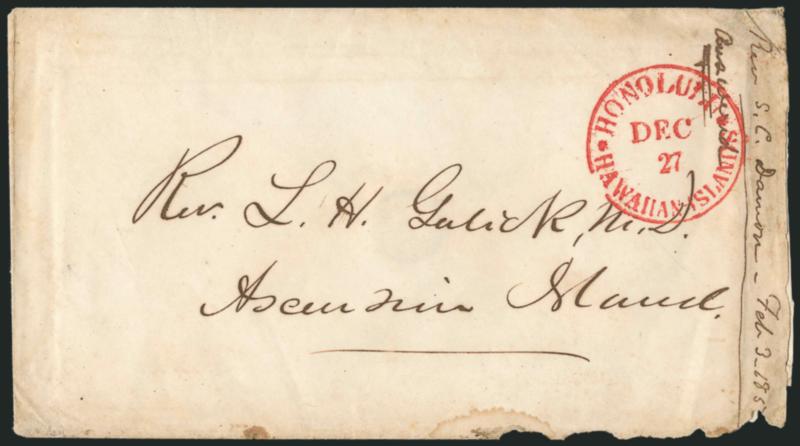 HONOLULU
DEC
27
HAWAIIAN ISLANDS
Rev. L. H. Gulick, M.D.
Ascension Island.
Rev S. C. Damon - Feb 3 - 185
Answered